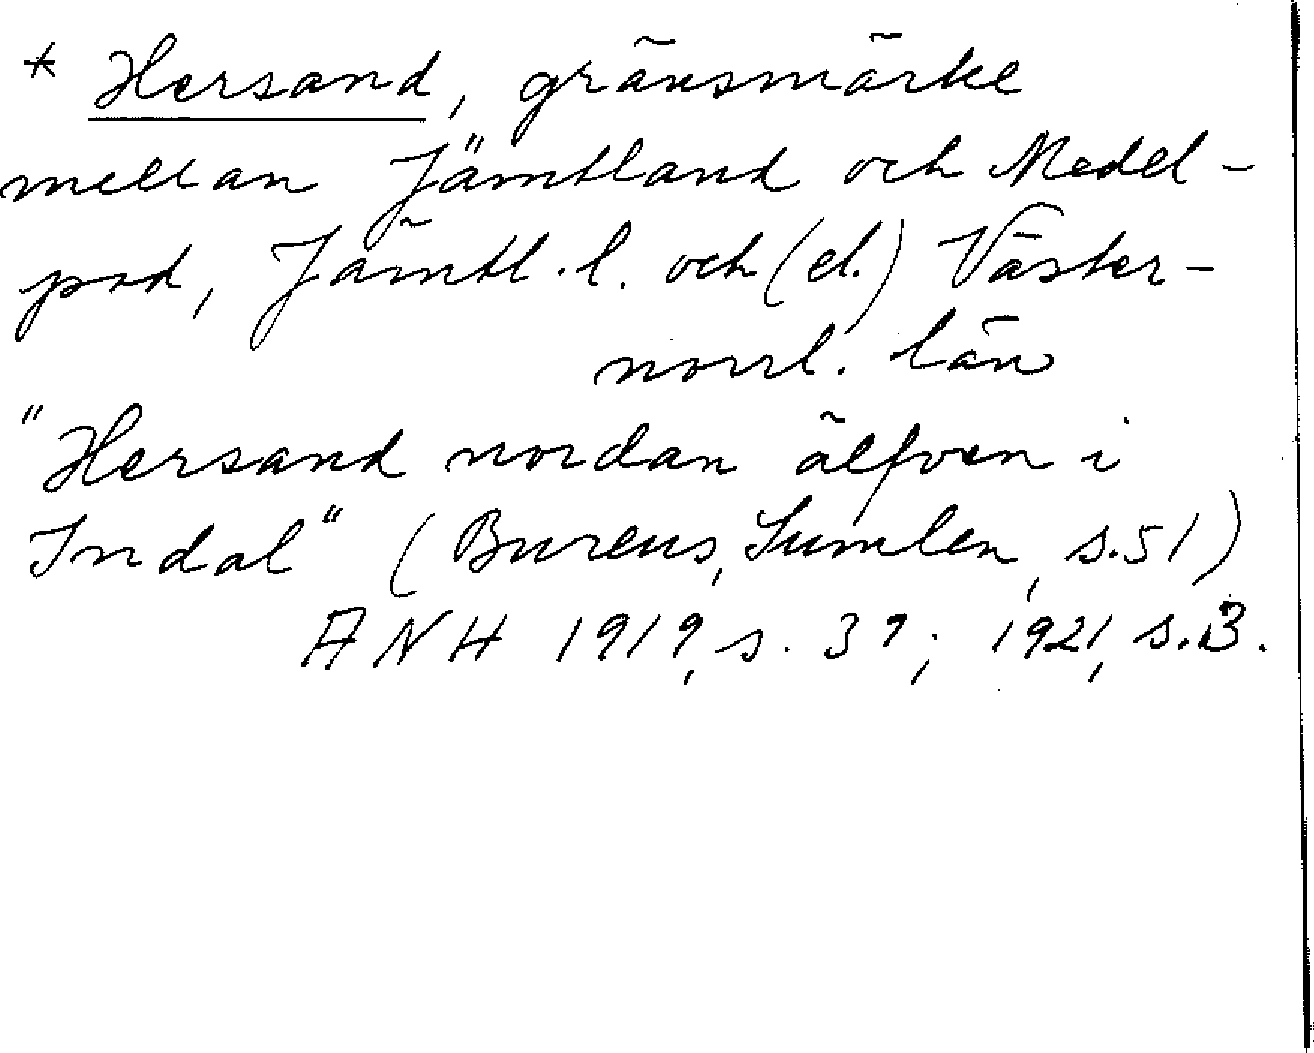 * Hersand, gränsmärke
mellan Jämtland och Medel-
pad, Jämtl. l. och (el.) Väster-
norrl. län
"Hersand nordan älfven i
Indal" (Bureus, Sumlen, s. 51)
ANH 1919, s. 39; 1921, s. 3.